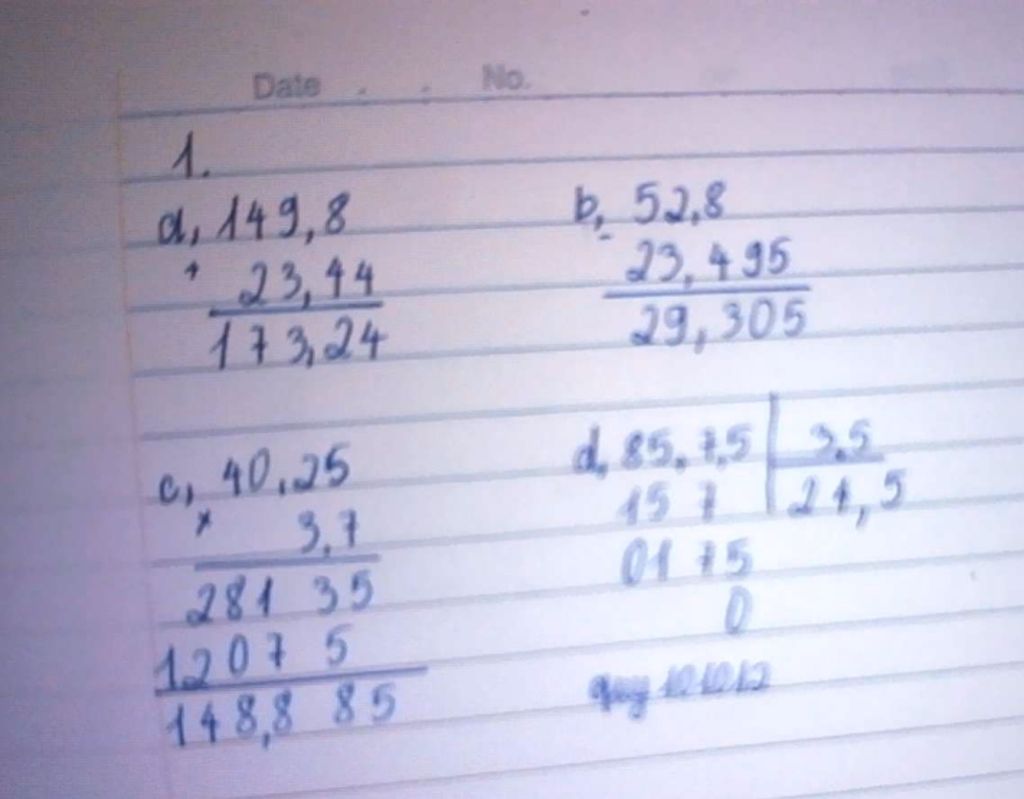 Date . . No.
1.
a, 149,8
+ 23,44
173,24
b, 52,8
- 23,495
29,305
c, 40,25
x 3,7
281 35
1207 5
148,8 85
d, 85,7,5 | 3,5
15 7 | 24,5
01 75
0